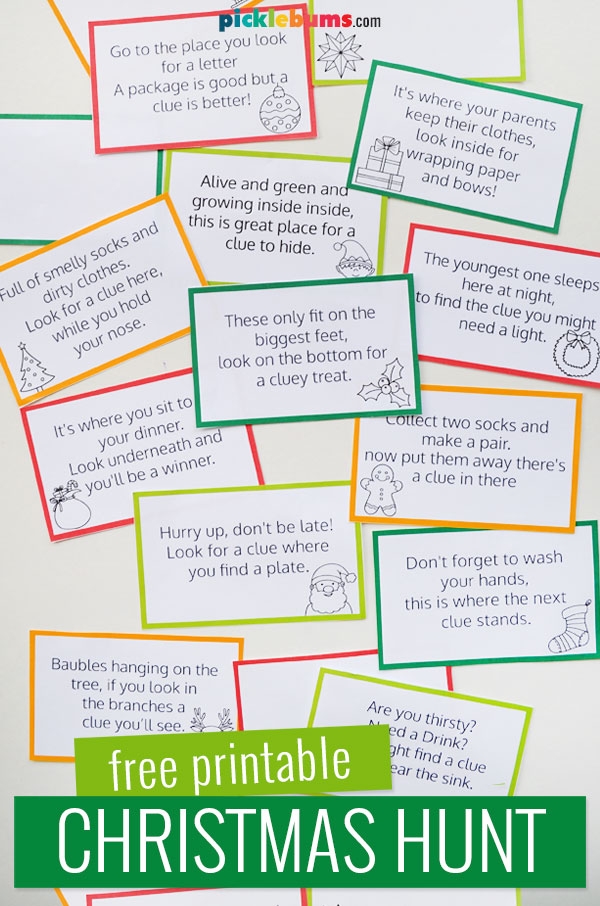 picklebums.com
Go to the place you look
for a letter
A package is good but a
clue is better!
It's where your parents
keep their clothes,
look inside for
wrapping paper
and bows!
Alive and green and
growing inside inside,
this is great place for a
clue to hide.
Full of smelly socks and
dirty clothes.
Look for a clue here,
while you hold
your nose.
The youngest one sleeps
here at night,
to find the clue you might
need a light.
These only fit on the
biggest feet,
look on the bottom for
a cluey treat.
It's where you sit to
your dinner.
Look underneath and
you'll be a winner.
Collect two socks and
make a pair.
now put them away there's
a clue in there
Hurry up, don't be late!
Look for a clue where
you find a plate.
Don't forget to wash
your hands,
this is where the next
clue stands.
Baubles hanging on the
tree, if you look in
the branches a
clue you'll see.
Are you thirsty?
Need a Drink?
find a clue
the sink.
free printable
CHRISTMAS HUNT